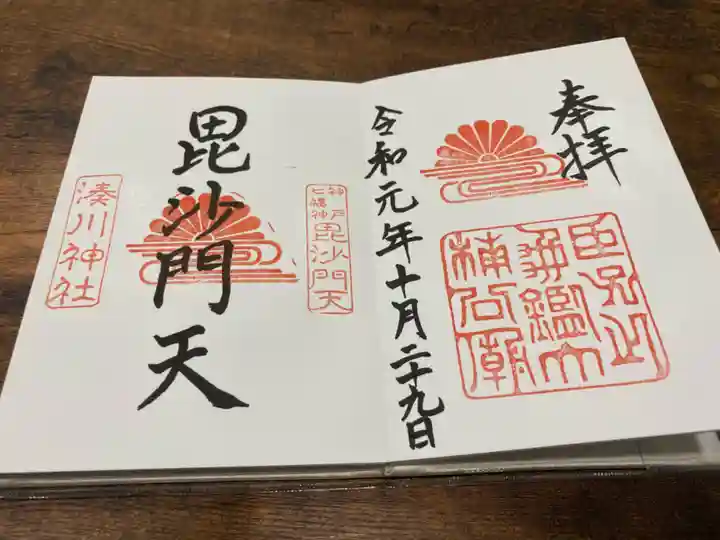 奉拝
令和元年十月二十九日
毘沙門天
神戸
七福神
毘沙門天
湊川神社